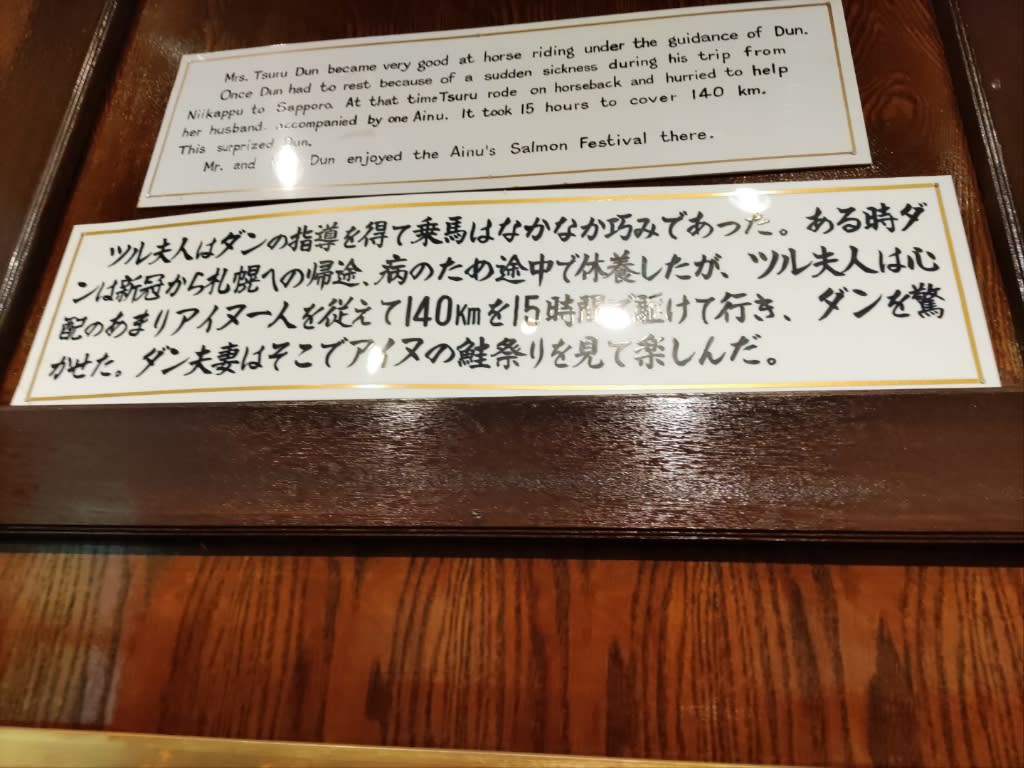 Mrs. Tsuru Dun became very good at horse riding under the guidance of Dun.
Once Dun had to rest because of a sudden sickness during his trip from
Niikappu to Sapporo. At that time Tsuru rode on horseback and hurried to help
her husband accompanied by one Ainu. It took 15 hours to cover 140 km.
This surprized Dun.
Mr. and Dun enjoyed the Ainu's Salmon Festival there.
ツル夫人はダンの指導を得て乗馬はなかなか巧みであった。ある時ダ
ンは新冠から札幌への帰途、病のため途中で休養したが、ツル夫人は心
配のあまりアイヌ一人を従えて140Kmを15時間で駆けて行き、ダンを驚
かせた。ダン夫妻はそこでアイヌの鮭祭りを見て楽しんだ。